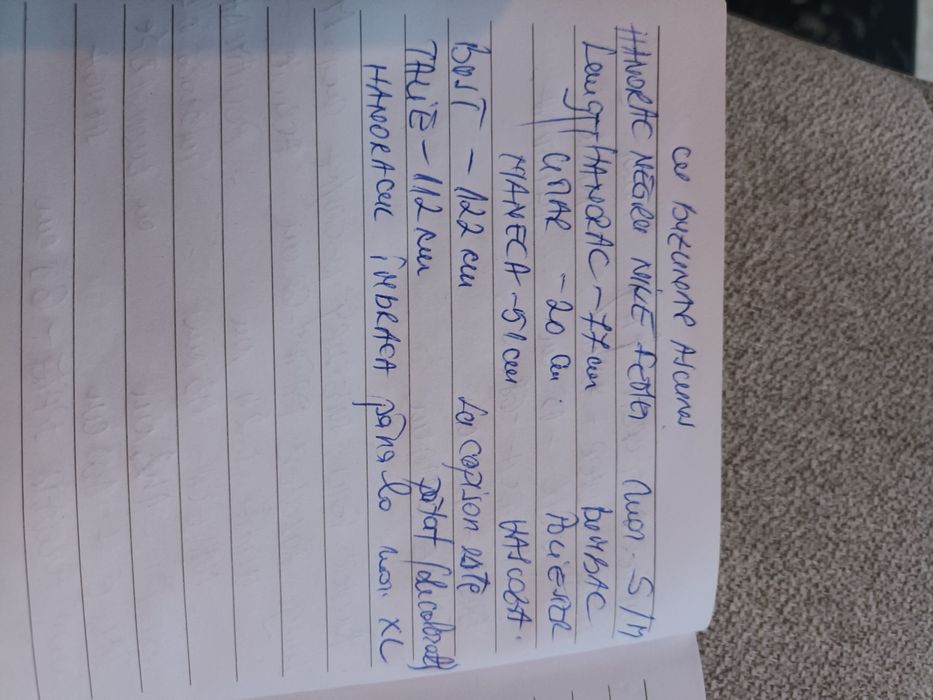 cu buzunar ascuns
HANORAC NEGRU NIKE femei mar. S/M
Lungi HANORAC - 77 cm BUMBAC
UMAR - 20 cm. POLIESTER
MANECA - 51 cm VASCOZA.
BUST - 122 cm La capison este
TALIE - 112 cm pătat (decolorat)
HANORACUL ÎMBRACA până la mar. XL